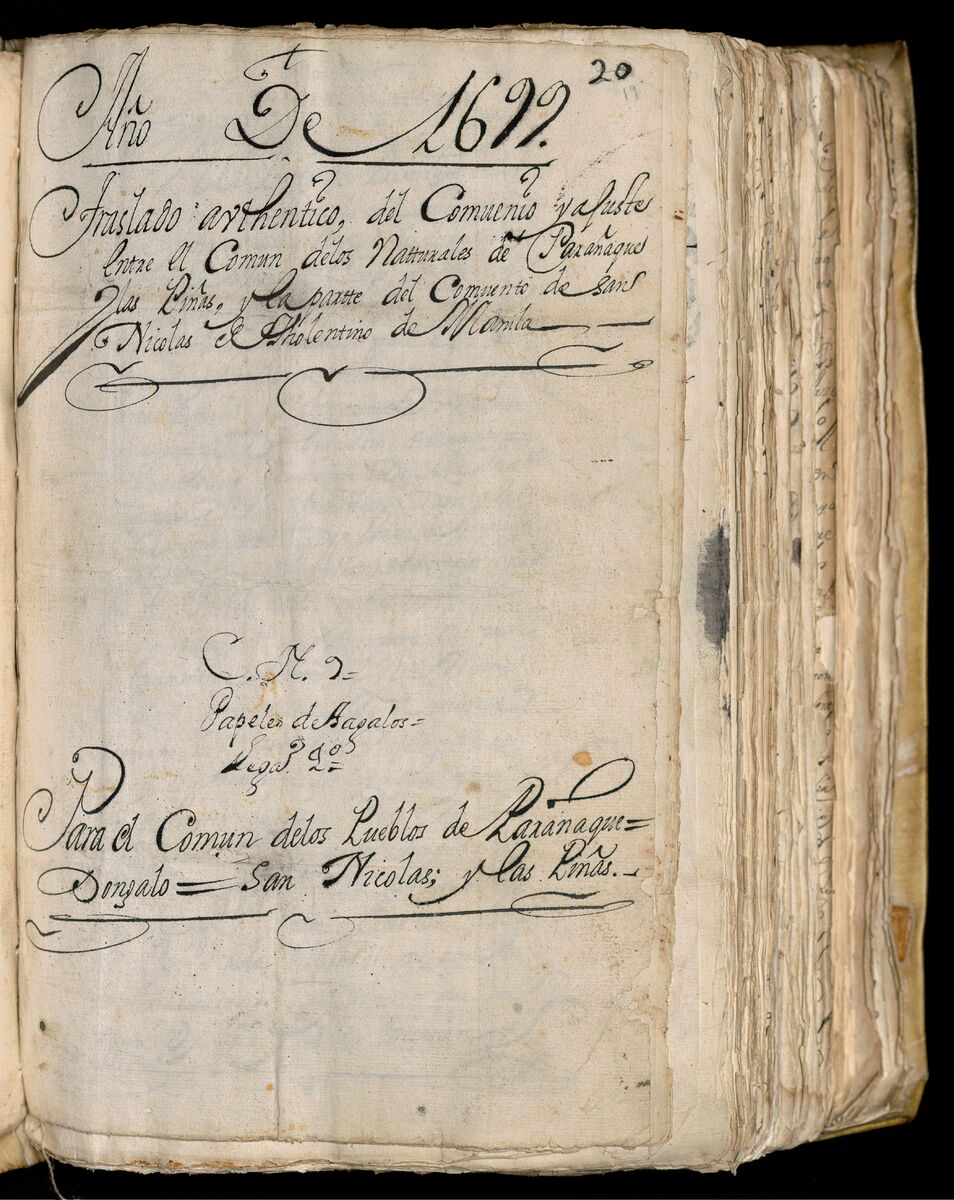 20
19
Año De 1699.
Traslado authentico, del Comuenio y ajuste
Entre el Comun delos Natturales de Parañaque
y las Piñas, y la partte del Comuento de san
Nicolas de Tholentino de Manila
C. N. 9=
Papeles de Hagalos=
Legaº. 2º=
Para el Comun delos Pueblos de Parañaque=
Dongalo= San Nicolas; y las Piñas.